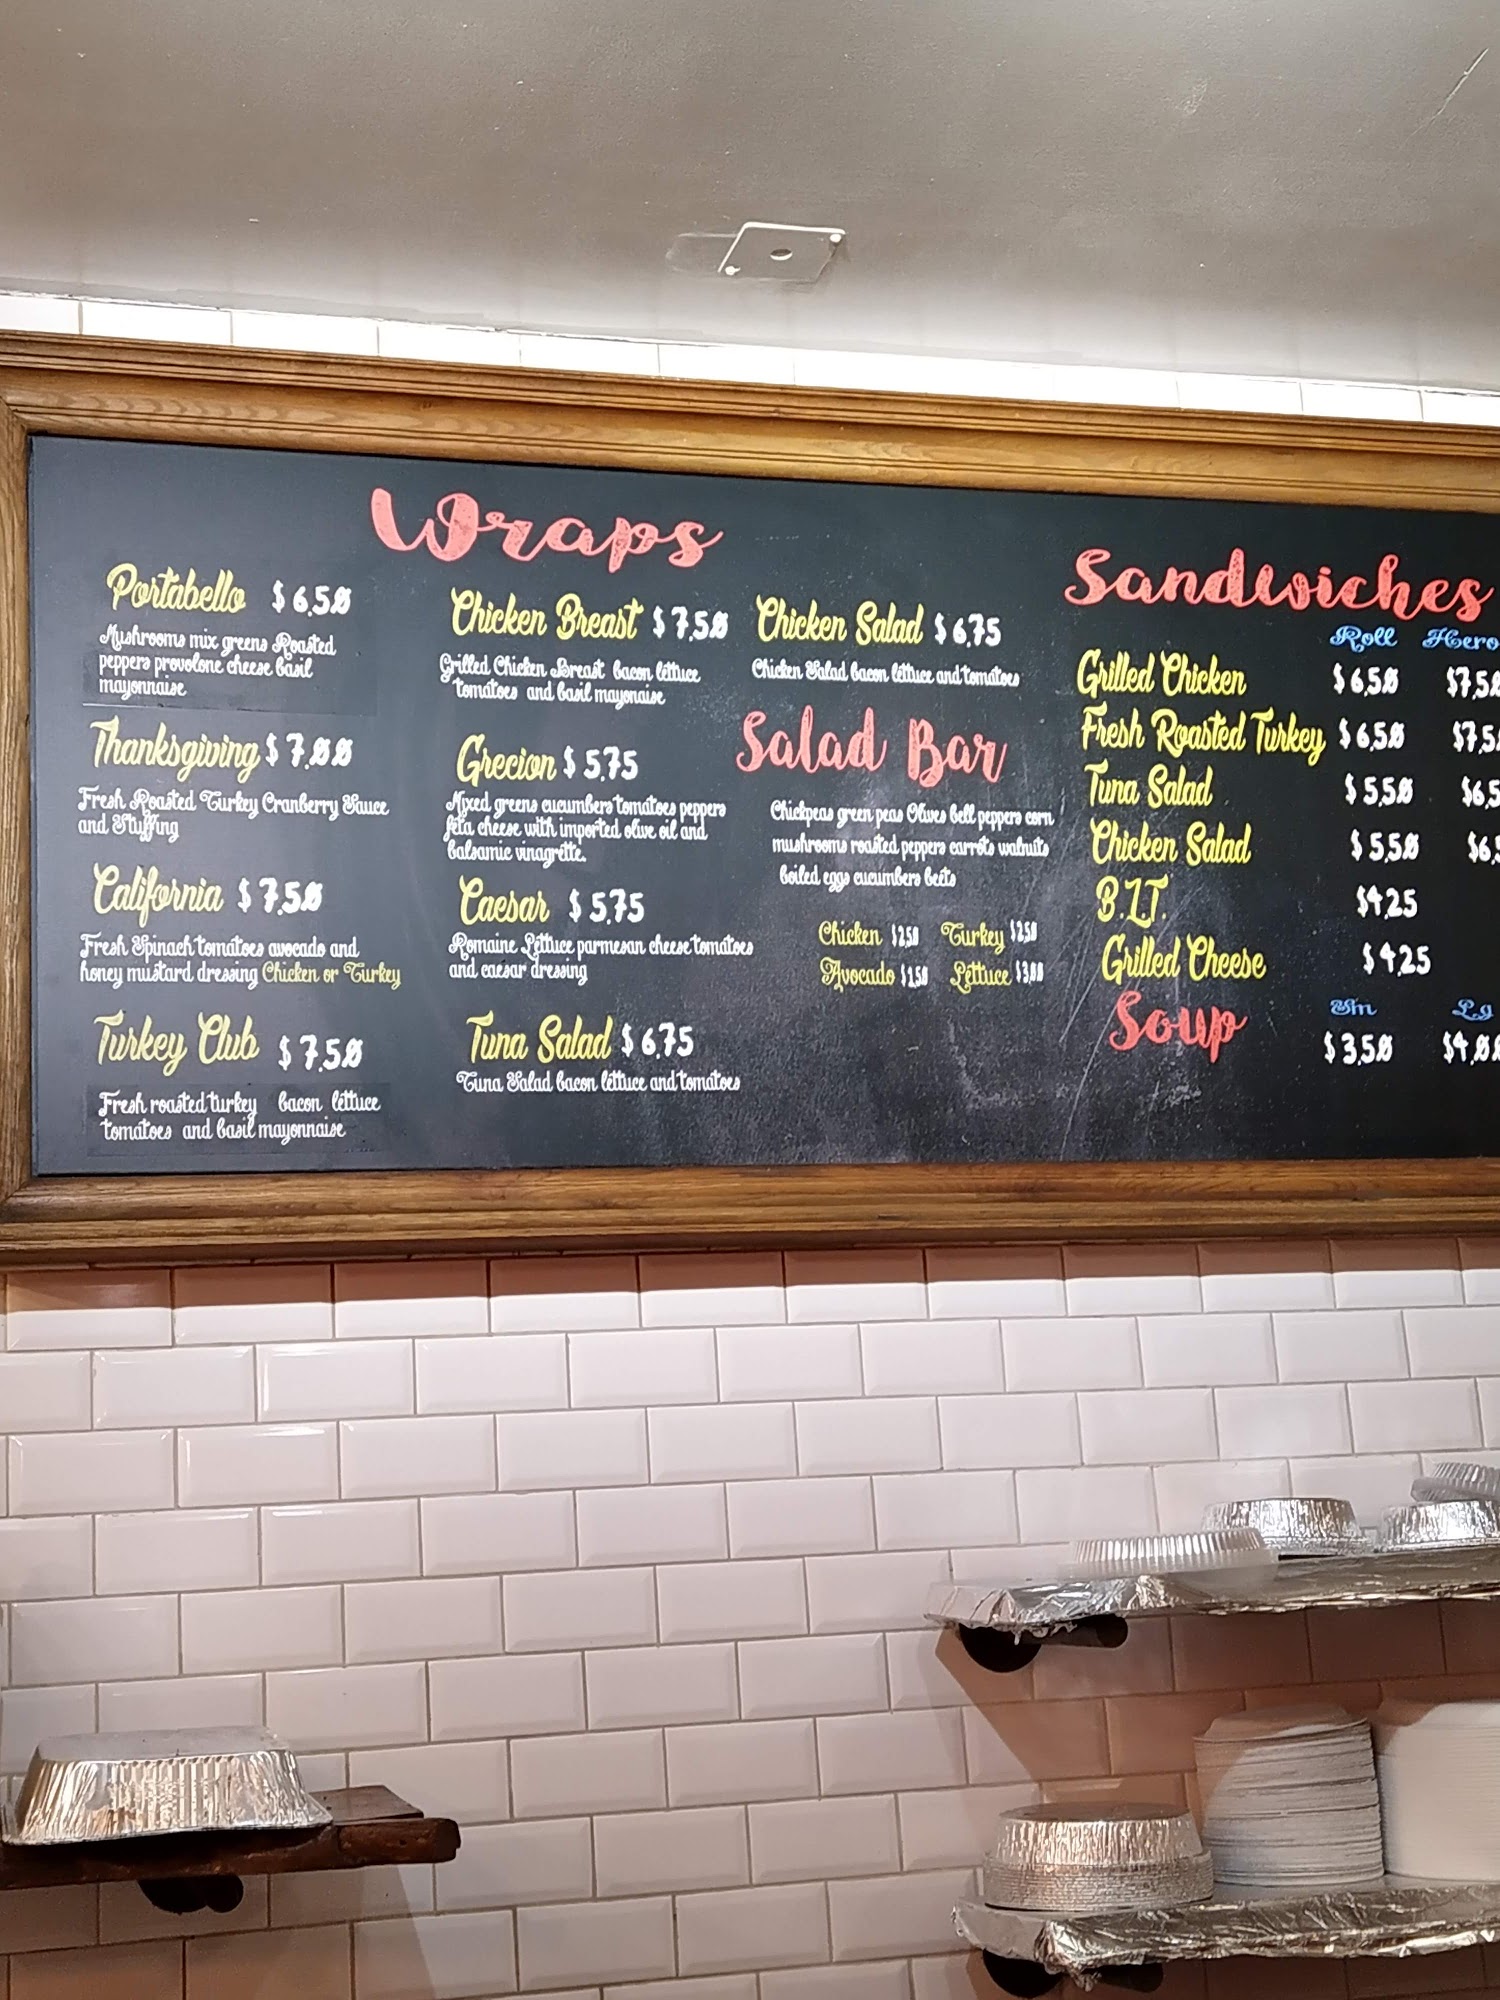 Wraps
Portabello $6.50
Mushrooms mix greens Roasted
peppers provolone cheese basil
mayonnaise
Thanksgiving $7.00
Fresh Roasted Turkey Cranberry Sauce
and Stuffing
California $7.50
Fresh Spinach tomatoes avocado and
honey mustard dressing Chicken or Turkey
Turkey Club $7.50
Fresh roasted turkey bacon lettuce
tomatoes and basil mayonnaise
Chicken Breast $7.50
Grilled Chicken Breast bacon lettuce
tomatoes and basil mayonaise
Grecion $5.75
Mixed greens cucumbers tomatoes peppers
feta cheese with imported olive oil and
balsamic vinagrette.
Caesar $5.75
Romaine Lettuce parmesan cheese tomatoes
and caesar dressing
Tuna Salad $6.75
Tuna Salad bacon lettuce and tomatoes
Chicken Salad $6.75
Chicken Salad bacon lettuce and tomatoes
Salad Bar
Chickpeas green peas Olives bell peppers corn
mushrooms roasted peppers carrots walnuts
boiled eggs cucumbers beets
Chicken $2.50 Turkey $2.50
Avocado $1.50 Lettuce $3.00
Sandwiches
Roll Hero
Grilled Chicken $6.50 $7.50
Fresh Roasted Turkey $6.50 $7.5
Tuna Salad $5.50 $6.5
Chicken Salad $5.50 $6.5
B.L.T. $4.25
Grilled Cheese $4.25
Sm Lg
Soup $3.50 $4.00